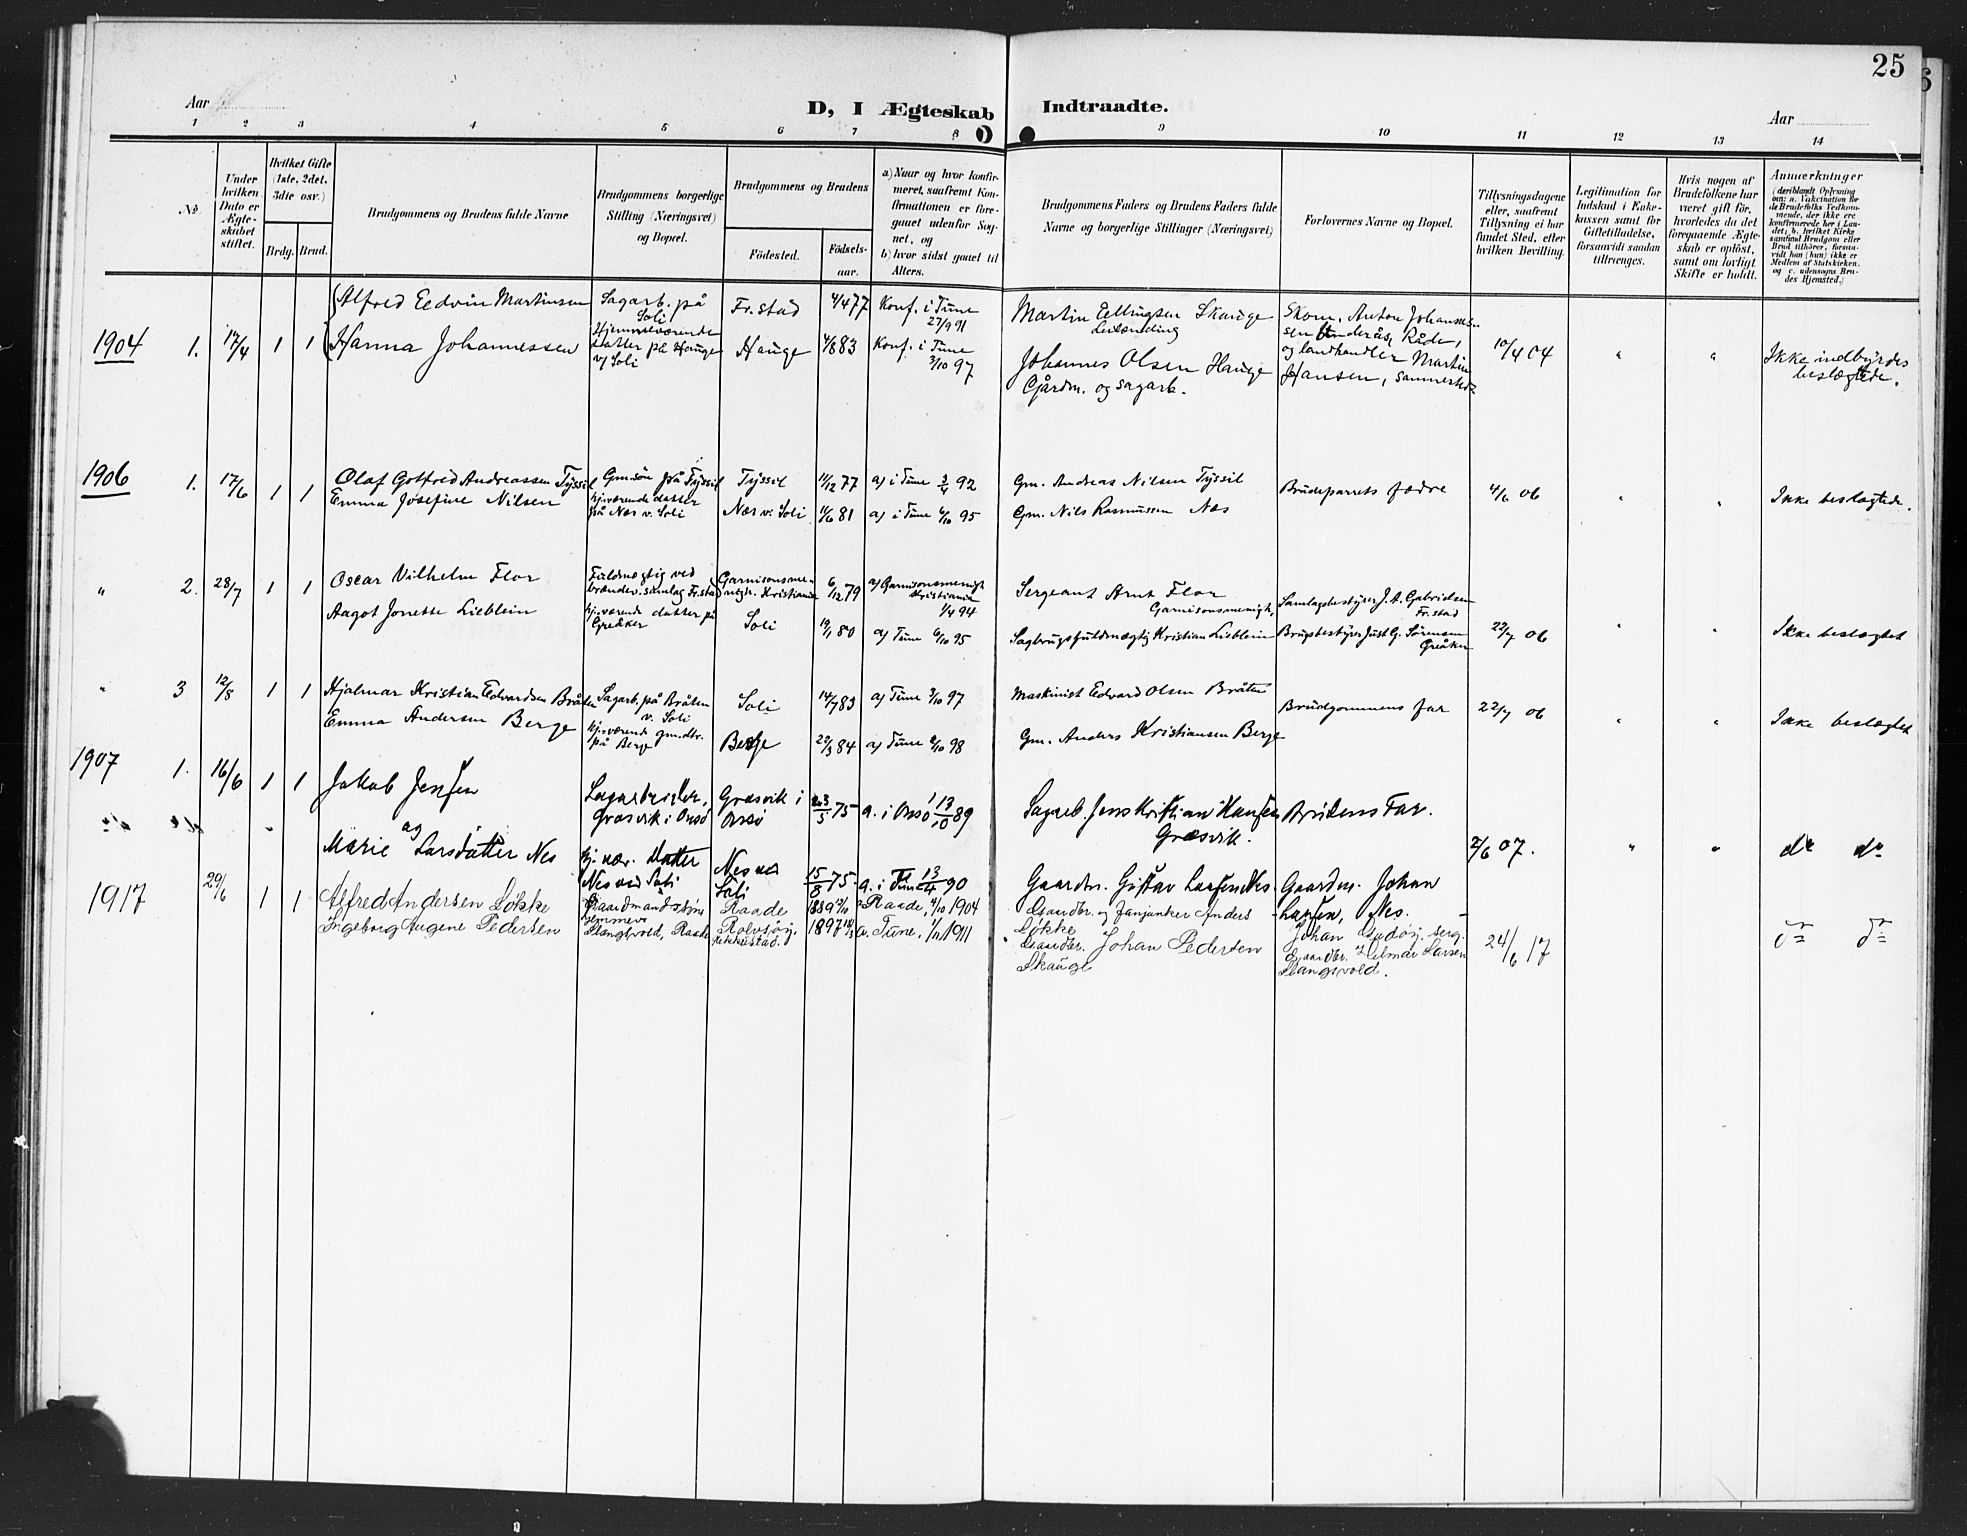 25
Aar
D, I Ægteskab Indtraadte.
Aar
1 2 3 4 5 6 7 8 9 10 11 12 13 14
No.
Under hvilken Dato er Ægteskabet stiftet.
Hvilket Gifte (1ste, 2det, 3die osv.)
Brdg. Brud.
Brudgommens og Brudens fulde Navne
Brudgommens borgerlige Stilling (Næringsvei) og Bopæl.
Brudgommens og Brudens
Födested.
Födsels-aar.
a) Naar og hvor konfirmeret, saafremt Konfirmationen er foregaaet udenfor Sognet, og
b) hvor sidst gaaet til Alters.
Brudgommens Faders og Brudens Faders fulde Navne og borgerlige Stillinger (Næringsvei)
Forlovernes Navne og Bopæl.
Tillysningsdagene eller, saafremt Tillysning ei har fundet Sted, efter hvilken Bevilling.
Legitimation for Indskud i Enkekassen samt for Giftetilladelse, forsaavidt saadan tiltrænges.
Hvis nogen af Brudefolkene har været gift för, hvorledes da det foregaaende Ægteskab er oplöst, samt om lovligt Skifte er holdt.
Anmærkninger
(deriblandt Oplysning om: a. Vaccination for de Brudefolks Vedkommende, der ikke ere konfirmerede her i Landet; b. hvilket Kirkesamfund Brudgom eller Brud tilhörer, forsaavidt han (hun) ikke er Medlem af Statskirken, og c. udensogns Brudes Hjemsted.)
1904 1. 17/4 1 1
Alfred Edvin Martinsen
Hanna Johannessen
Sagarb. på Soli
Hjemmeværende datter på Hauge v/ Soli
Fr.stad 4/4 77
Hauge 4/6 83
Konf. i Tune 27/9 91
Konf. i Tune 3/10 97
Martin Ellingsen Skauge
Leilænding
Johannes Olsen Hauge
Gårdm. og sagarb.
Skom. Anton Johannessen Underås, Råde,
og landhandler Martin
Hansen, sammesteds
10/4 04 " "
Ikke indbyrdes
beslægtede.
1906 1. 17/6 1 1
Olaf Gotfred Andreassen Tyssil
Emma Josefine Nilsen
Gm.sön på Tyssil
hj.værende datter
på Næs v. Soli
Tyssil 11/12 77 a) i Tune 3/4 92
Næs v. Soli 11/6 81 a) i Tune 6/10 95
Gm. Andreas Nilsen Tyssil
Gm. Nils Rasmussen Næs
Brudeparrets fædre
4/6 06 " "
Ikke beslægtede.
" 2. 28/7 1 1
Oscar Vilhelm Flor
Aagot Jonette Lieblein
Fuldmægtig ved
brændev.samlag Fr.stad
hj.værende datter på
Greåker
Garnisonsme-
nigh. Kristiania 6/12 79
Soli 19/1 80
a) Garnisonsmenigh.
Kristiania
1/4 94
a) Tune 6/10 95
Sergeant Arnt Flor
Garnisonsmenigh.
Sagbrugsfuldmægtig Kristian Lieblein
Samlagsbestyrer J. A. Gabrielsen
Fr.stad
Brugsbestyrer Just G. Sörensen
Greåker
22/7 06 " "
Ikke beslægtet
" 3 12/8 1 1
Hjalmar Kristian Edvardsen Bråten
Emma Andersen Berge
Sagarb. på Bråten
v. Soli
hj.værende gm.dtr.
på Berge
Soli 14/7 83 a) Tune 3/10 97
Berge 22/3 84 a) Tune 2/10 98
Maskinist Edvard Olsen Bråten
Gm. Anders Kristiansen Berge
Brudgommens far
22/7 06 " "
Ikke beslægtet
1907 1. 16/6 1 1
Jakob Jensen
og
Marie Larsdatter Nes
Sagarbeider,
Græsvik i Onsö
hj. vær. Datter
Nes ved Soli
Græsvik i
Onsö
Nes ved
Soli
23/5 75
15/8 75
a. i Onsö 13/10 89
a. i Tune 13/4 90
Sagarb. Jens Kristian Hansen
Græsvik.
Gaardbr. Gustav Larsen Nes
Brudens Far.
Gaardm. Johan
Larsen, Nes.
2/6 07. " "
do do
1917 29/6 1 1
Alfred Andersen Løkke
Ingeborg Augene Pedersen
Gaardmandssøn
hjemmev.
Slangsvold, Raade
Raade
Rolvsøy,
1889
1897
a. Raade, 4/10 1904
a. Tune, 1/11 1911
Gaardbr. og Janjanker Anders
Løkke
Gaardbr. Johan Pedersen
Skauge
Gaardbr. Hilmar Larsen
Slangsvold.
24/6 17
do do